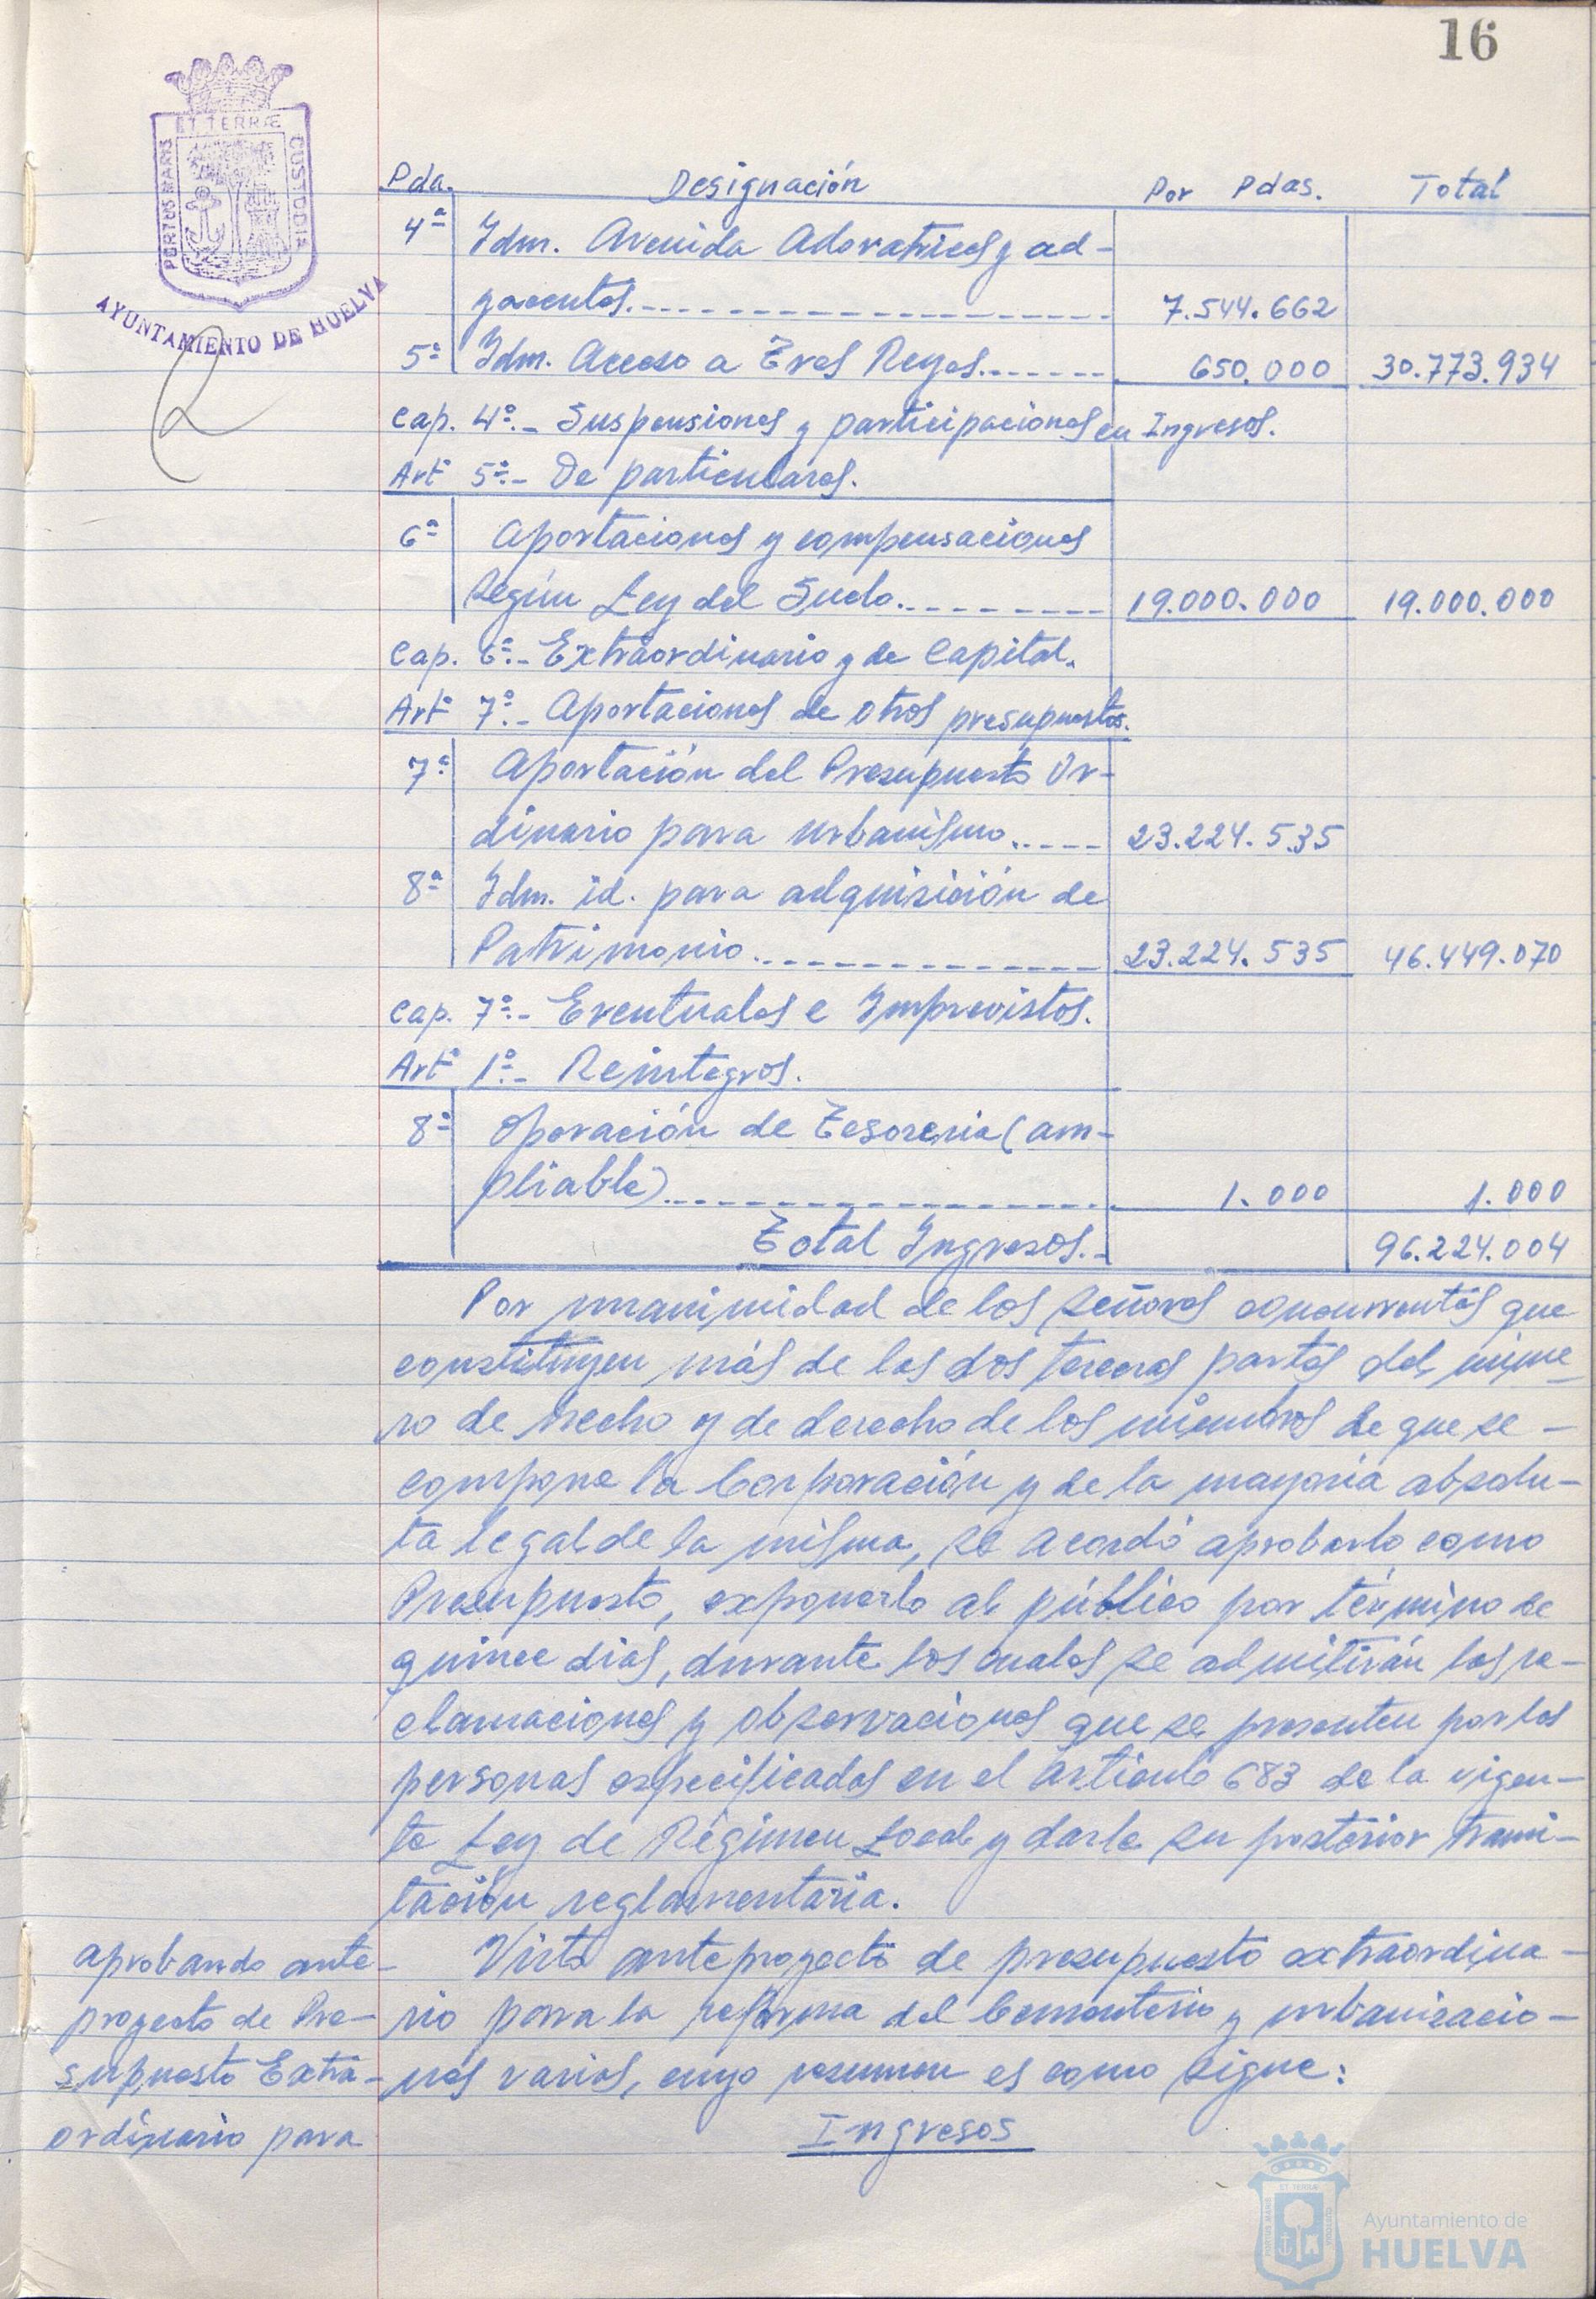 16
ET TERRÆ
PORTUS MARIS
CUSTODIA
AYUNTAMIENTO DE HUELVA
Pda. Designación Por Pdas. Total
4ª Idm. Avenida Adoratrices y ad-
yacentes.------ 7.544.662
5ª Idm. Acceso a Tres Reyes.------ 650.000 30.773.934
Cap. 4º.- Suspensiones y participaciones en Ingresos.
Artº 5º.- De particulares.
6ª Aportaciones y compensaciones
según Ley del Suelo.------ 19.000.000 19.000.000
Cap. 6º.- Extraordinario y de Capital.
Artº 7º.- Aportaciones de otros presupuestos.
7ª Aportación del Presupuesto Or-
dinario para urbanismo.----- 23.224.535
8ª Idm. id. para adquisición de
Patrimonio.------ 23.224.535 46.449.070
Cap. 7º.- Eventuales e Imprevistos.
Artº 1º.- Reintegros.
8ª Operación de Tesoreria (am-
pliable)------ 1.000 1.000
Total Ingresos.- 96.224.004
Por unanimidad de los señores concurrentes que
constituyen más de las dos terceras partes del núme-
ro de hecho y de derecho de los miembros de que se -
compone la Corporación y de la mayoria absolu-
ta legal de la misma, se acordó aprobarlo como
Presupuesto, exponerlo al público por término de
quince dias, durante los cuales se admitirán las re-
clamaciones y observaciones que se presenten por las
personas especificadas en el articulo 683 de la vigen-
te Ley de Régimen Local y darle su posterior trami-
tación reglamentaria.
aprobando ante-
proyecto de Pre-
supuesto Extra-
ordinario para
Visto anteproyecto de presupuesto extraordina-
rio para la reforma del Cementerio y urbanizacio-
nes varias, cuyo resumen es como sigue:
Ingresos
Ayuntamiento de
HUELVA